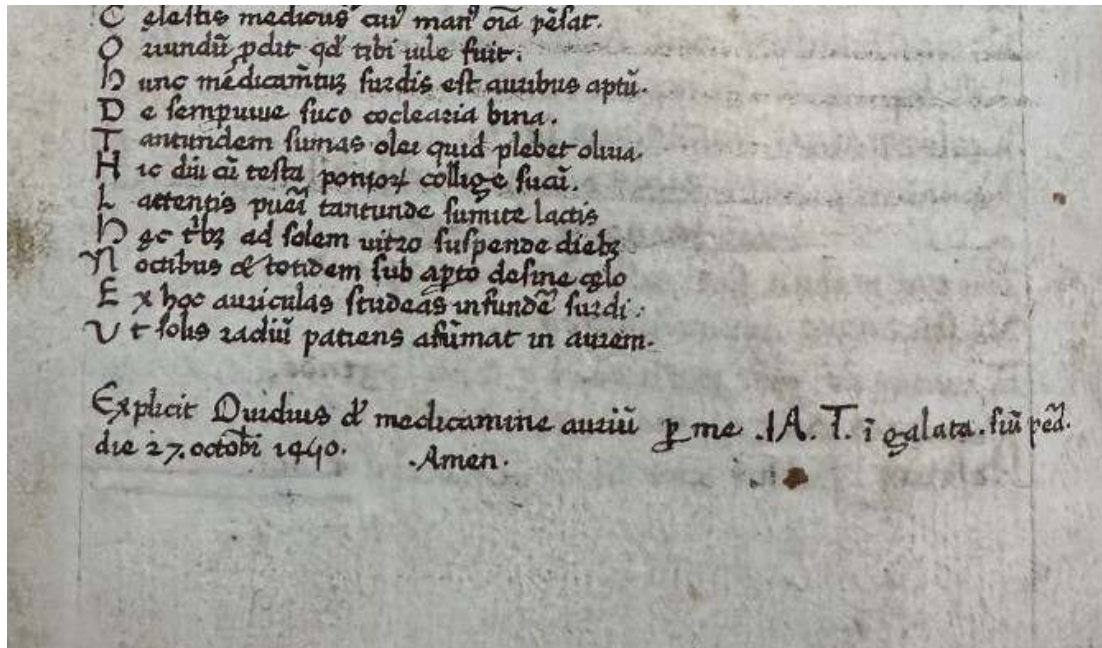 C elestis medicus cui⁹ man⁹ oı̃a pẽsat.
O riundũ ꝓdit qd̕ tibi iule fuit.
H unc mẽdicam̃tuꝫ surdis est auribus aptũ.
D e sempuiue suco coclearia bina.
T antundem sumas olei quid plebet oliua.
H ic diu cũ testa poꝛꝛoꝝ collige sucũ.
L actentis pueı̃ tantunde sumite lactis
H ęc tⁱbꝫ ad solem uitro suspende diebꝫ
N octibus & totidem sub aꝑto desine cęlo
E x hoc auriculas studeas infundẽ surdi.
V t solis radiũ patiens assũmat in aurem.
Explicit Ouidius d̕ medicamine auriũ ꝑ me .IA. T. ĩ galata. fiũ pẽd.
die 27. octobı̃ 1440. .Amen.